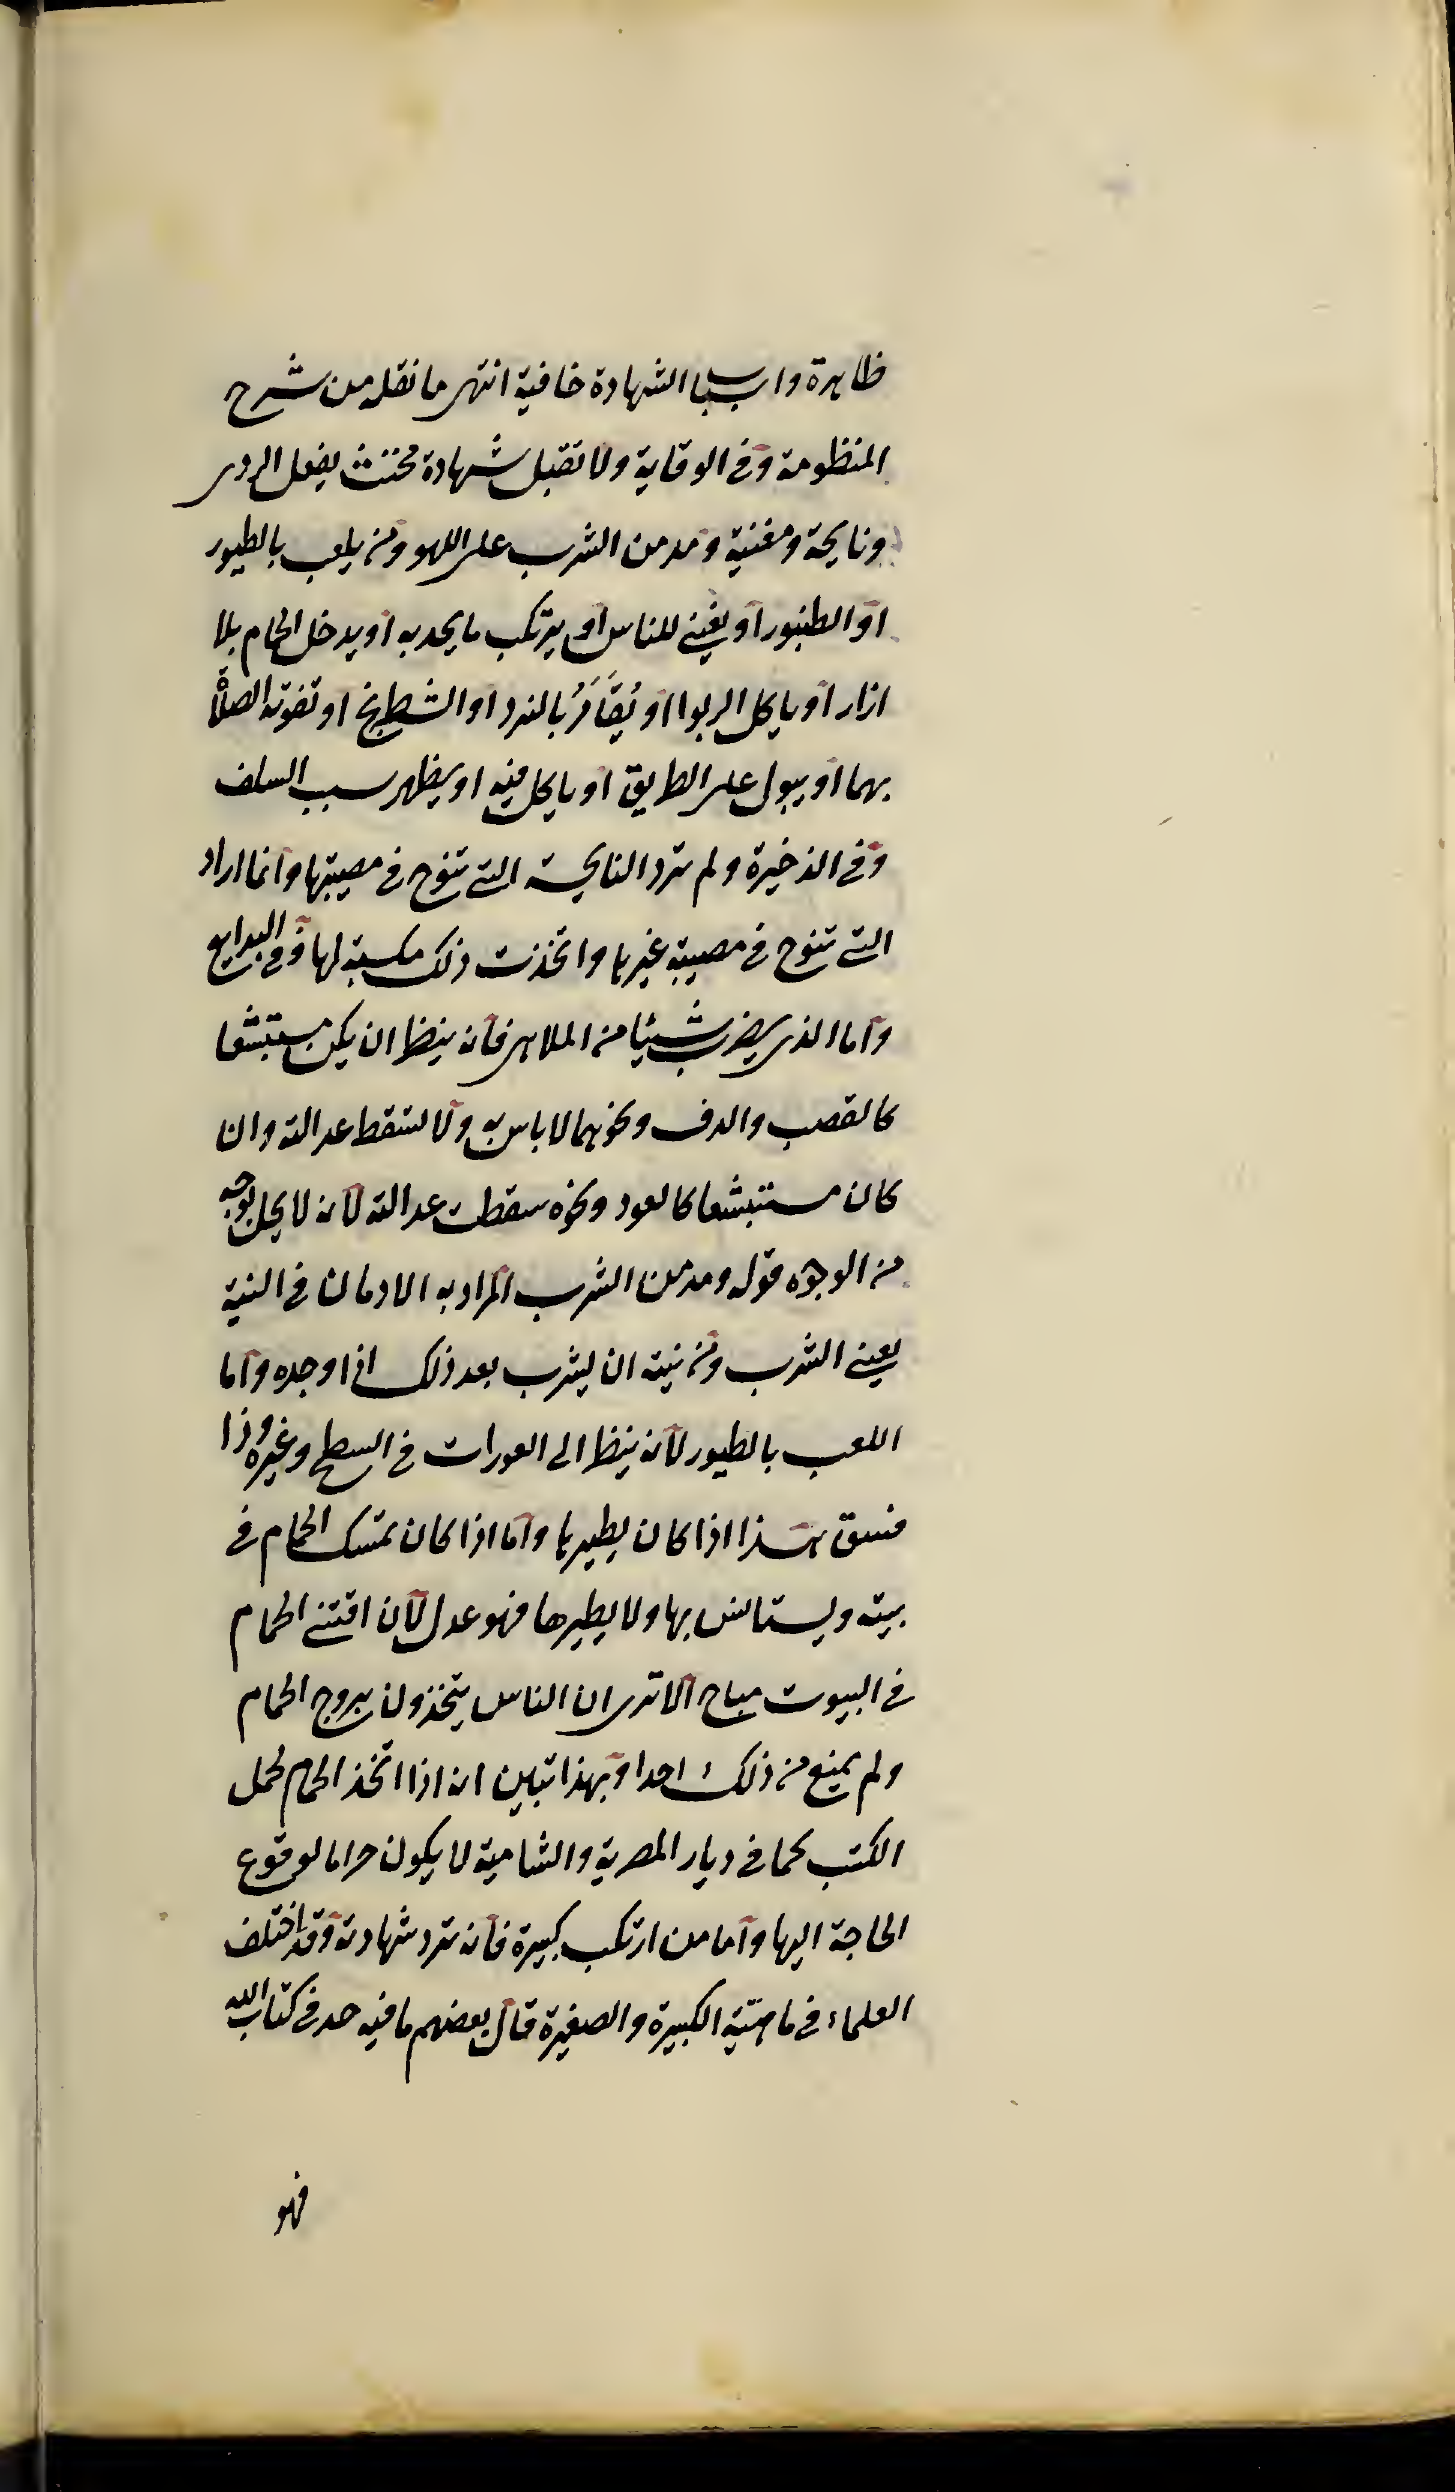 ظاهرة واسباب الشهادة خافية انتهى ما نقله من شرح
المنظومة وفى الوقاية ولا تقبل شهادة مخنث يفعل الردى
ونايحة ومغنية ومدمن الشرب على اللهو ومن يلعب بالطيور
او الطنبور او يغنى للناس او يرتكب ما يحد به او يدخل الحمام بلا
ازار او ياكل الربوا او يُقَامَرُ بالنرد او الشطرنج او تفوته الصلاة
بهما او يبول على الطريق او ياكل فيه او يظهر سب السلف
وفى الذخيرة ولم ترد النايحة التى تنوح فى مصيبتها وانما اراد
التى تنوح فى مصيبة غيرها واتخذت ذلك مكسبة لها وفى البدايع
واما الذى يضرب شيئا من الملاهى فانه ينظر ان يكن مستبشعا
كالقصب والدف ونحوهما لا باس به ولا تسقط عدالته وان
كان مستبشعا كالعود ونحوه سقطت عدالته لانه لا يحل بوجه
من الوجوه قوله ومدمن الشرب المراد به الادمان فى النية
يعنى الشرب ومن نيته ان يشرب بعد ذلك اذا وجده واما
اللعب بالطيور لانه ينظر الى العورات فى السطح وغيره وذا
فسق هذا اذا كان يطيرها واما اذا كان يمسك الحمام فى
بيته ويستانس بها ولا يطيرها فهو عدل لان اقتنى الحمام
فى البيوت مباح الا ترى ان الناس يتخذون بروج الحمام
ولم يمنع من ذلك احدا وبهذا تبين انه اذا اتخذ الحمام لحمل
الكتب كما فى ديار المصرية والشامية لا يكون حراما لوقوع
الحاجة اليها واما من ارتكب كبيرة فانه ترد شهادته وقد اختلف
العلماء فى ماهية الكبيرة والصغيرة قال بعضهم ما فيه حد فى كتاب الله
فهو